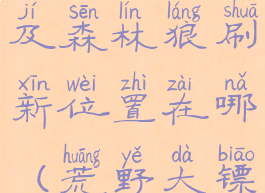 jí sēn lín láng shuā
及森林狼刷
xīn wèi zhì zài nǎ
新位置在哪
huāng yě dà biāo
(荒野大镖